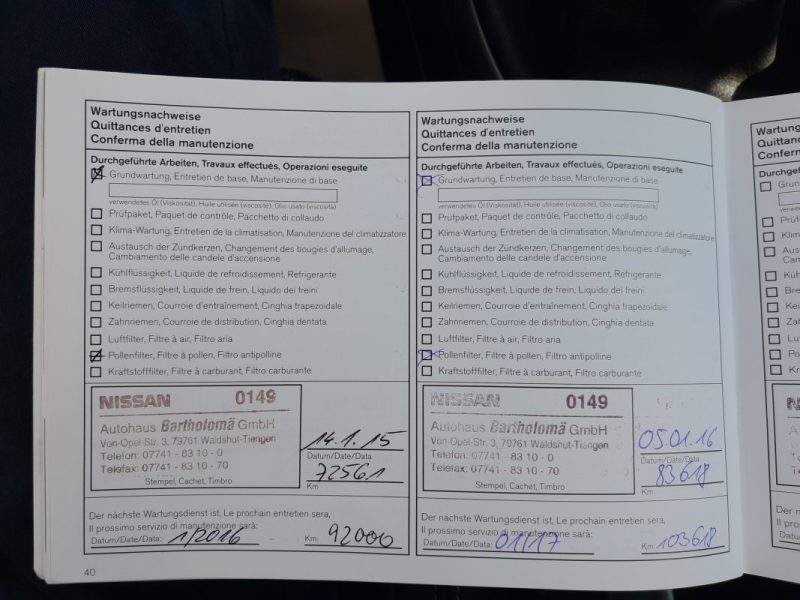 Wartungsnachweise
Quittances d'entretien
Conferma della manutenzione
Durchgeführte Arbeiten, Travaux effectués, Operazioni eseguite
Grundwartung, Entretien de base, Manutenzione di base
verwendetes Öl (Viskosität), Huile utilisée (viscosité), Olio usato (viscosità)
Prüfpaket, Paquet de contrôle, Pacchetto di collaudo
Klima-Wartung, Entretien de la climatisation, Manutenzione del climatizzatore
Austausch der Zündkerzen, Changement des bougies d'allumage,
Cambiamento delle candele d'accensione
Kühlflüssigkeit, Liquide de refroidissement, Refrigerante
Bremsflüssigkeit, Liquide de frein, Liquido dei freini
Keilriemen, Courroie d'entraînement, Cinghia trapezoidale
Zahnriemen, Courroie de distribution, Cinghia dentata
Luftfilter, Filtre à air, Filtro aria
Pollenfilter, Filtre à pollen, Filtro antipolline
Kraftstofffilter, Filtre à carburant, Filtro carburante
NISSAN 0149
Autohaus Bartholomä GmbH
Von-Opel-Str. 3, 79761 Waldshut-Tiengen
Telefon: 07741 - 83 10 - 0
Telefax: 07741 - 83 10 - 70
Stempel, Cachet, Timbro
14.1.15
Datum/Date/Data
72561
Km
Der nächste Wartungsdienst ist, Le prochain entretien sera,
Il prossimo servizio di manutenzione sarà:
Datum/Date/Data: 1/2016 Km: 92000
40
Wartungsnachweise
Quittances d'entretien
Conferma della manutenzione
Durchgeführte Arbeiten, Travaux effectués, Operazioni eseguite
Grundwartung, Entretien de base, Manutenzione di base
verwendetes Öl (Viskosität), Huile utilisée (viscosité), Olio usato (viscosità)
Prüfpaket, Paquet de contrôle, Pacchetto di collaudo
Klima-Wartung, Entretien de la climatisation, Manutenzione del climatizzatore
Austausch der Zündkerzen, Changement des bougies d'allumage,
Cambiamento delle candele d'accensione
Kühlflüssigkeit, Liquide de refroidissement, Refrigerante
Bremsflüssigkeit, Liquide de frein, Liquido dei freini
Keilriemen, Courroie d'entraînement, Cinghia trapezoidale
Zahnriemen, Courroie de distribution, Cinghia dentata
Luftfilter, Filtre à air, Filtro aria
Pollenfilter, Filtre à pollen, Filtro antipolline
Kraftstofffilter, Filtre à carburant, Filtro carburante
NISSAN 0149
Autohaus Bartholomä GmbH
Von-Opel-Str. 3, 79761 Waldshut-Tiengen
Telefon: 07741 - 83 10 - 0
Telefax: 07741 - 83 10 - 70
Stempel, Cachet, Timbro
05.01.16
Datum/Date/Data
83618
Km
Der nächste Wartungsdienst ist, Le prochain entretien sera,
Il prossimo servizio di manutenzione sarà:
Datum/Date/Data: 01/17 Km: 103618